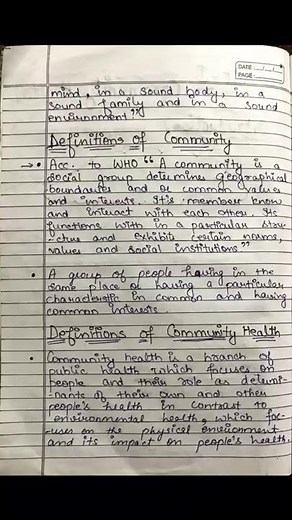 DATE
PAGE
mind, in a sound body, in a
sound family and in a sound
environment"
Definitions of Community
→ • Acc. to WHO "A community is a
social group determines geographical
boundaries and or common values
and interests. It's member know
and interact with each other. Its
functions with in a particular stru-
cture and exhibit certain norms,
values and social institutions"
• A group of people having in the
same place or having a particular
characteristic in common and having
common interests.
Definitions of Community Health
• Community health is a branch of
public health which focuses on
people and their role as determi-
-nants of their own and other
people's health in contrast to
environmental health, which foc-
-uses on the physical environment
and its impact on people's health.